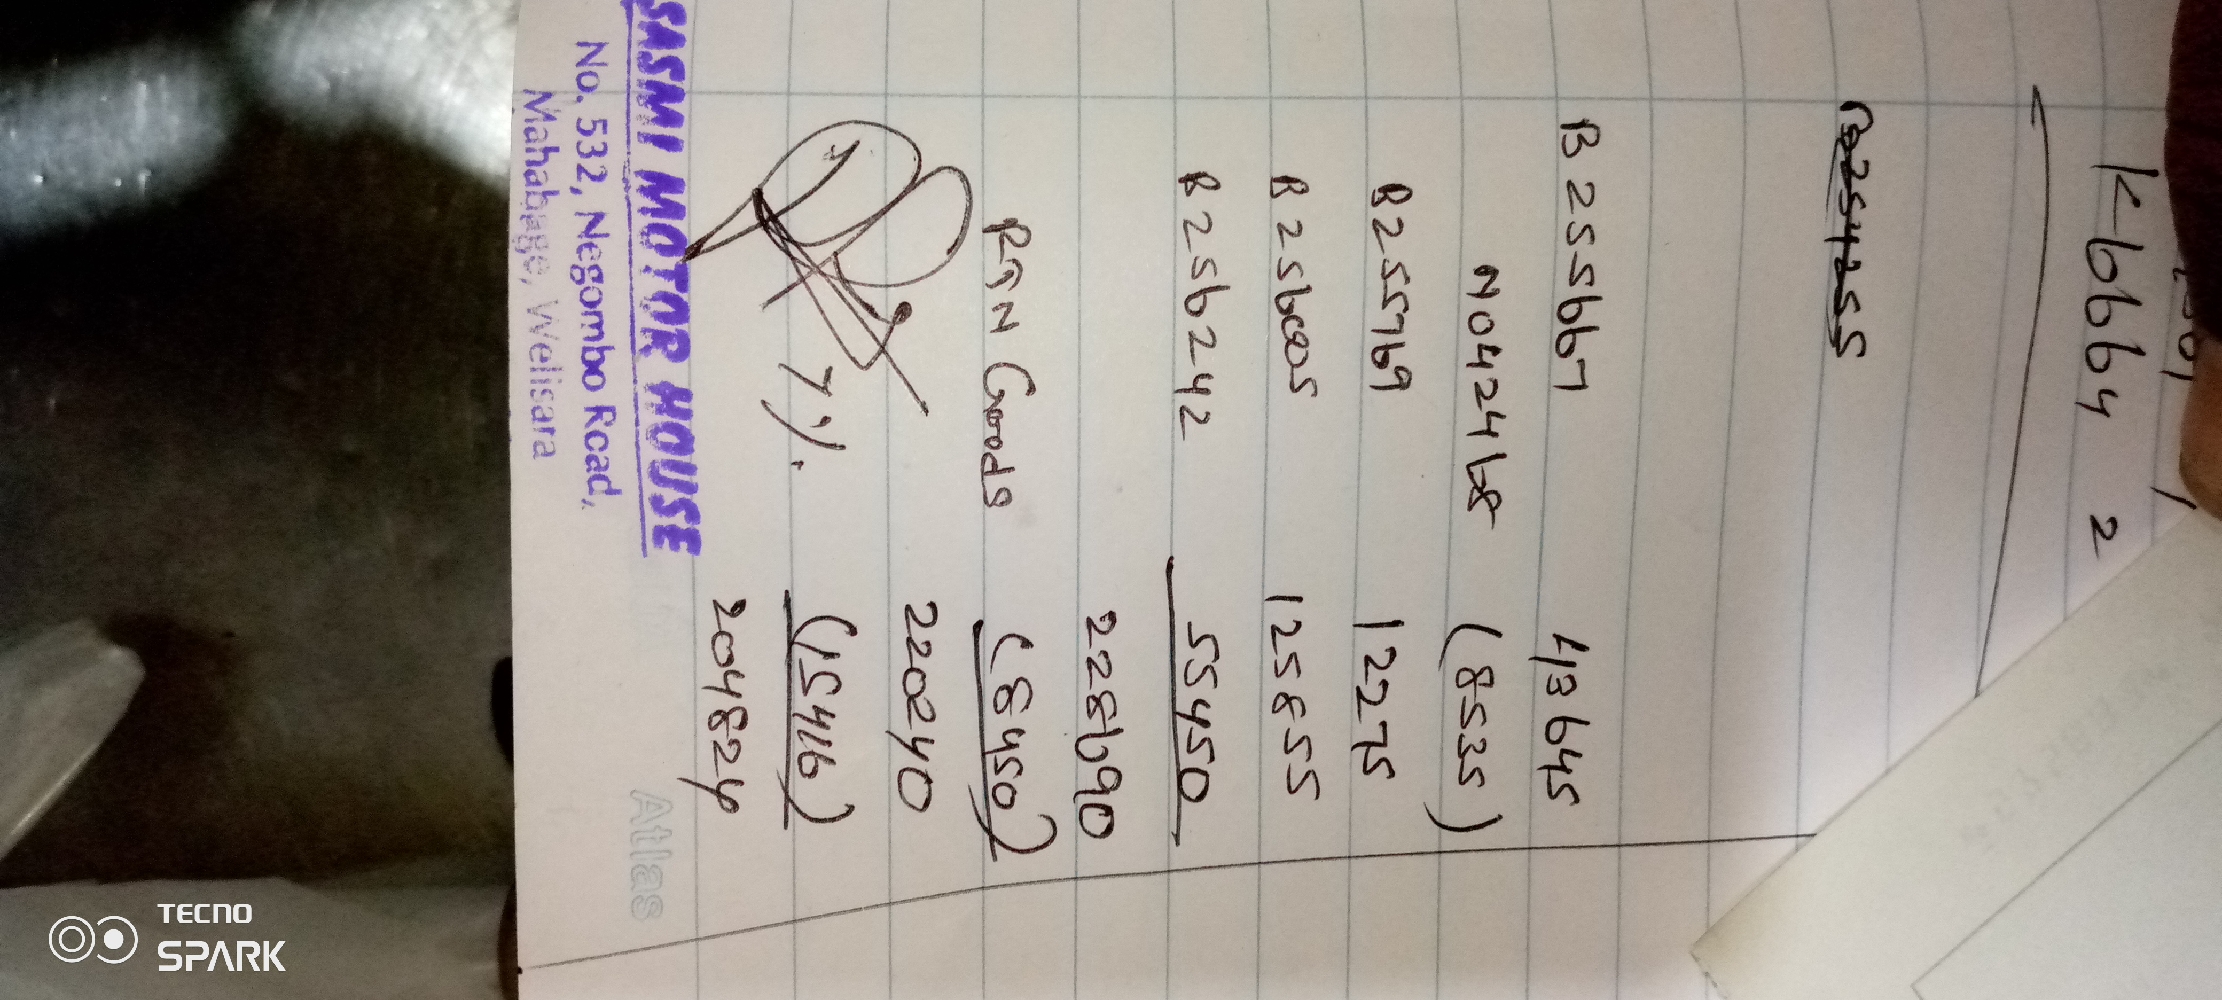 K-6664 2
B254255
B 255667 43645
N042468 (8535)
B255769 12275
B 256005 125855
B 256242 55450
228690
RTN Goods (8450)
220240
7%. (15416)
204824
SASMI MOTOR HOUSE
No. 532, Negombo Road,
Mahabage, Welisara
Atlas
TECNO
SPARK